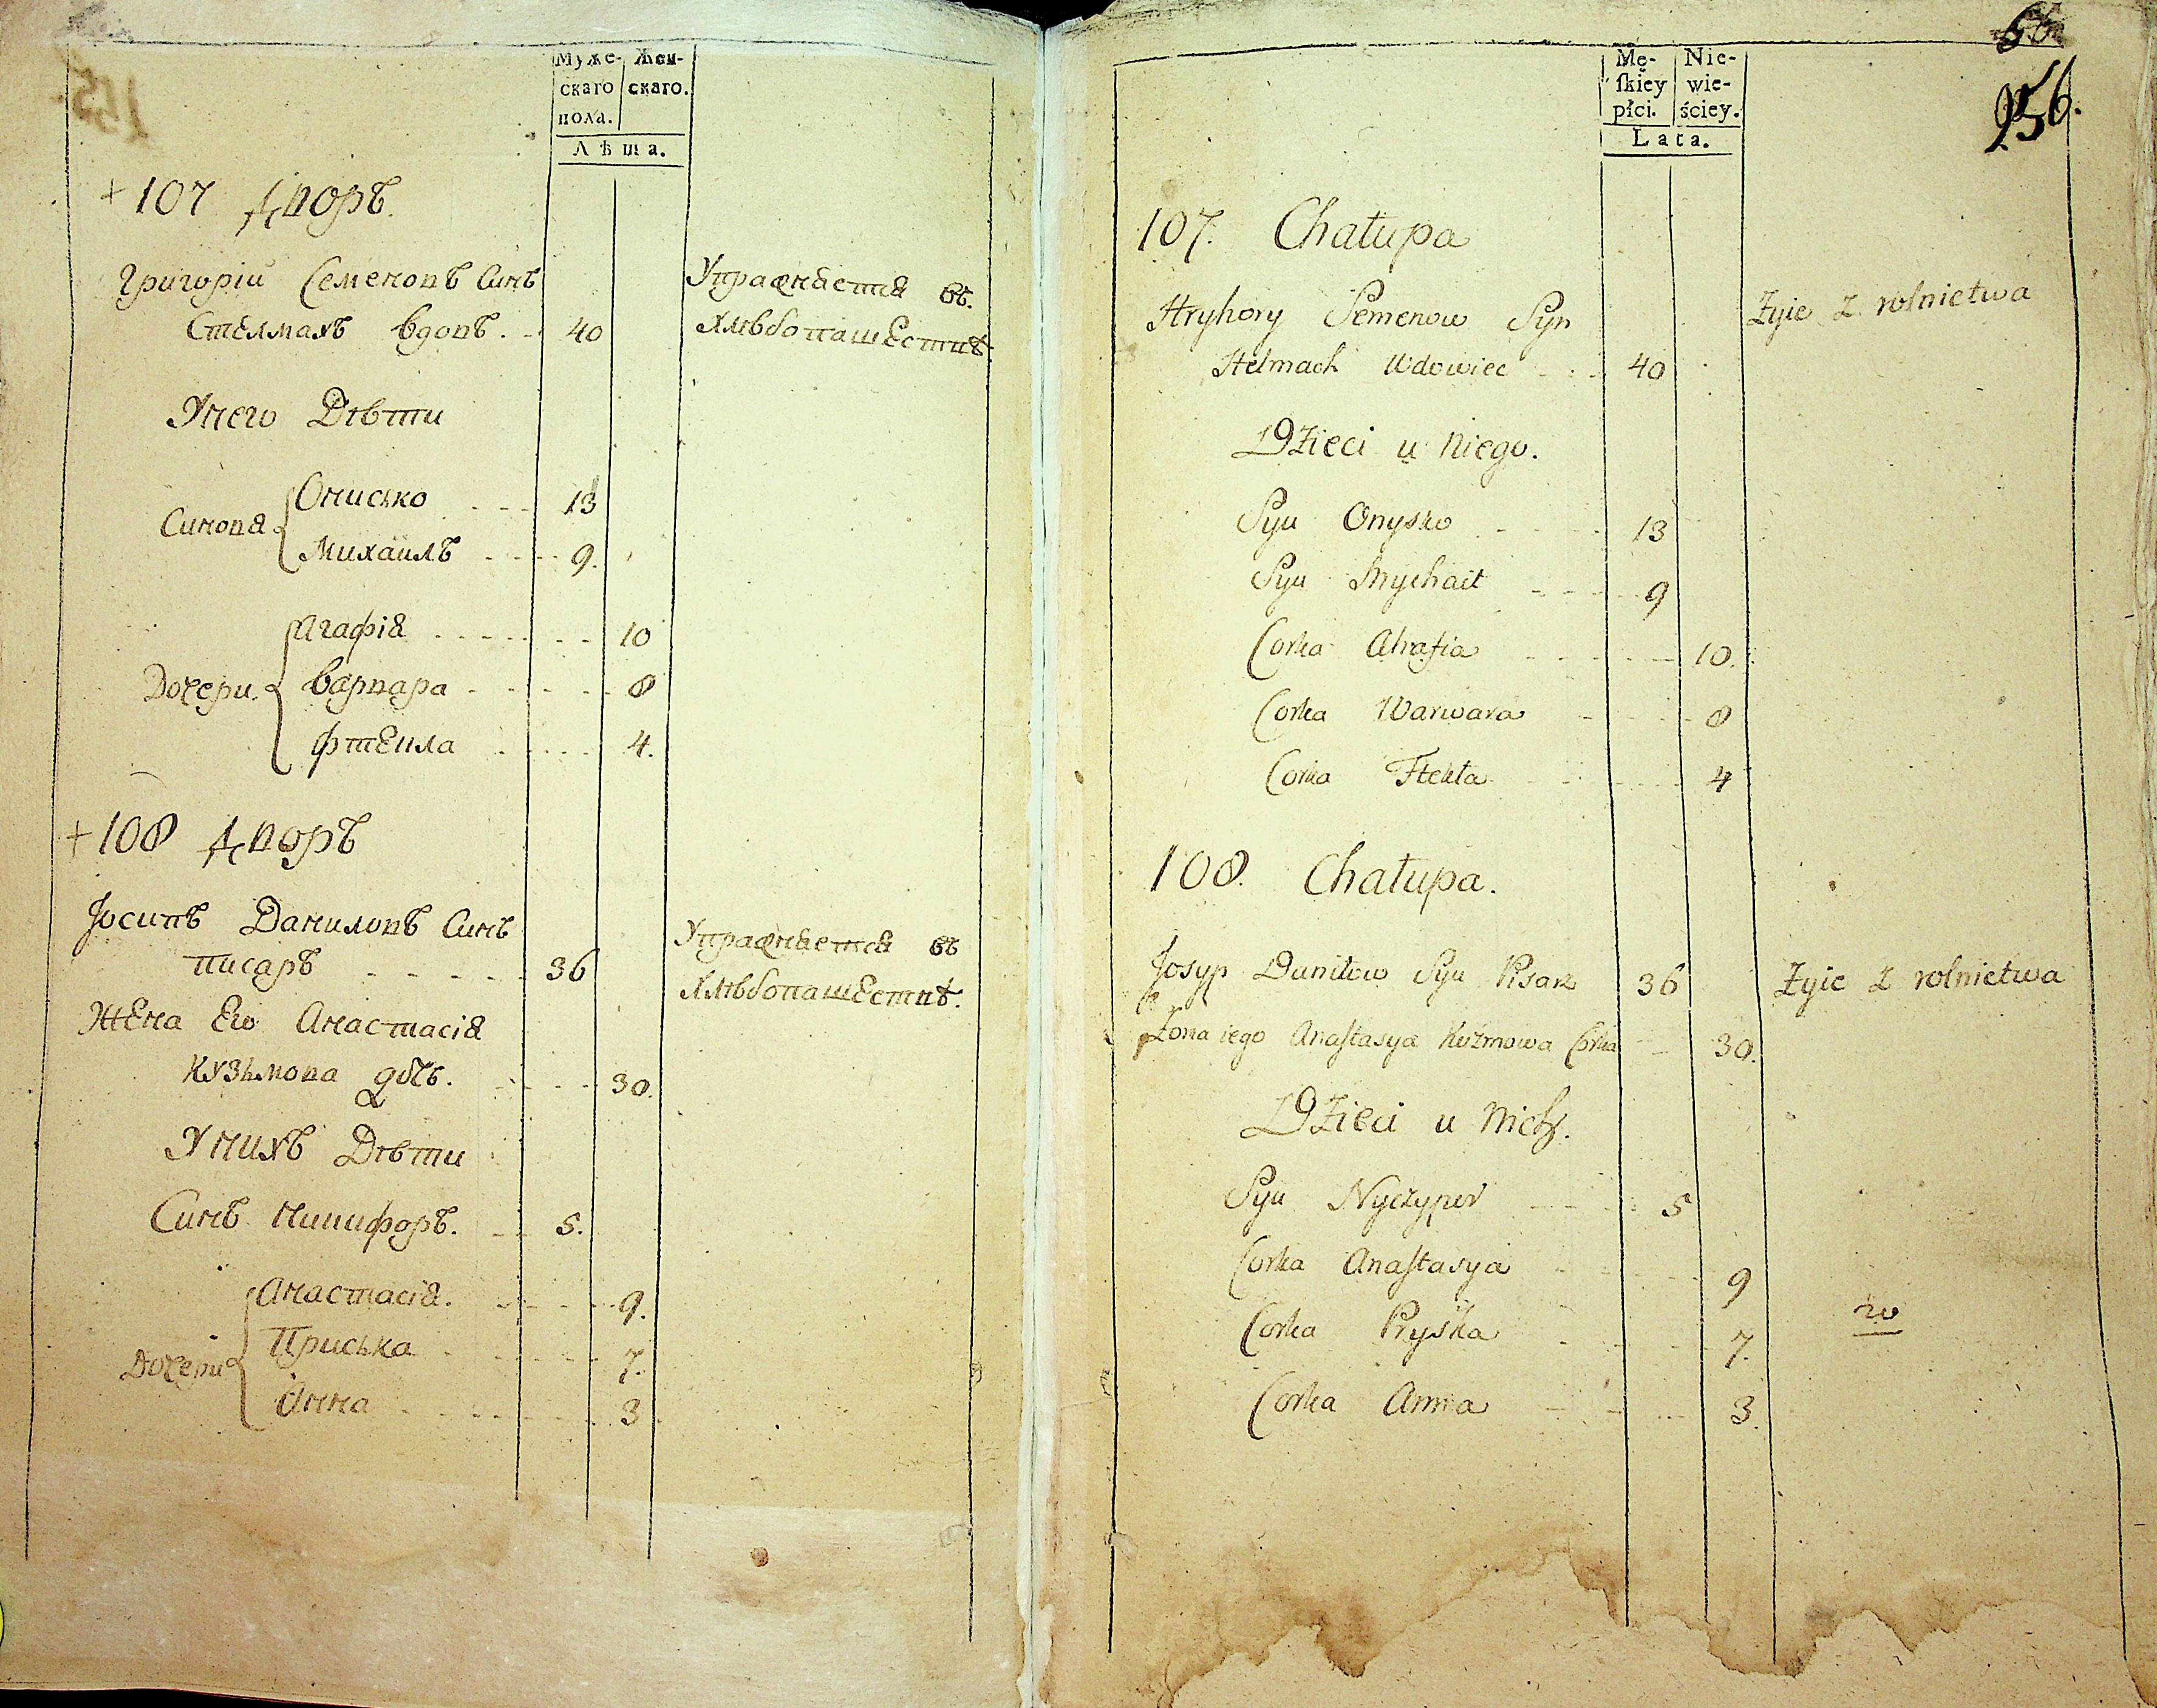 Муже- Жен-
скаго скаго.
пола.
Лѣта.
+ 107 Дворъ.
Григорій Семеновъ Синъ Упражняется въ
Стелмахъ вдовъ. 40 Хлѣбопашествѣ.
У него Дѣти
Синовя
Онисько 13
Михаилъ 9.
Дочери
Агафія 10
Варвара 8
Фтекла 4.
+ 108 Дворъ
Іосипъ Даниловъ Синъ Упражняется въ
писаръ 36 Хлѣбопашествѣ.
Жена Его Анастасія
Кузьмова дочь. 30.
У нихъ Дѣти
Синъ Ничифоръ. 5.
Дочери
Анастасія. 9.
Приська 7.
Анна 3.
56
156.
Mę- Nie-
skiey wie-
płci. ściey.
Lata.
107. Chałupa
Hryhory Semenow Syn Żyie z rolnictwa
Stelmach Wdowiec 40
Dzieci u niego.
Syn Onysko 13
Syn Mychaił 9
Corka Ahafia 10.
Corka Warwara 8
Corka Ftekła 4
108. Chałupa.
Josyp Daniłow Syn Pisarz 36 Żyie z rolnictwa
Żona iego Anastasya Kuźmowa Corka 30.
Dzieci u nich.
Syn Nyczypor 5
Corka Anastasya 9
Corka Pryśka 7.
Corka Anna 3.